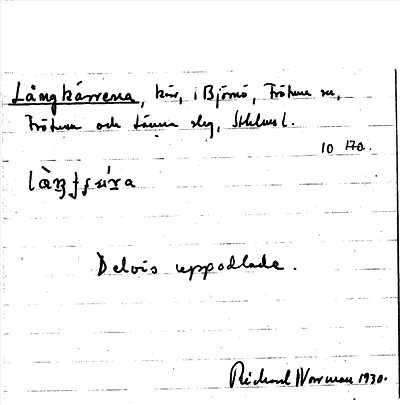 Långkärrena, kär, i Björnö, Frötuna sn,
Frötuna och Länna slg, Sthlms l.
10
Delvis uppodlade.
Richard Norrman 1930.